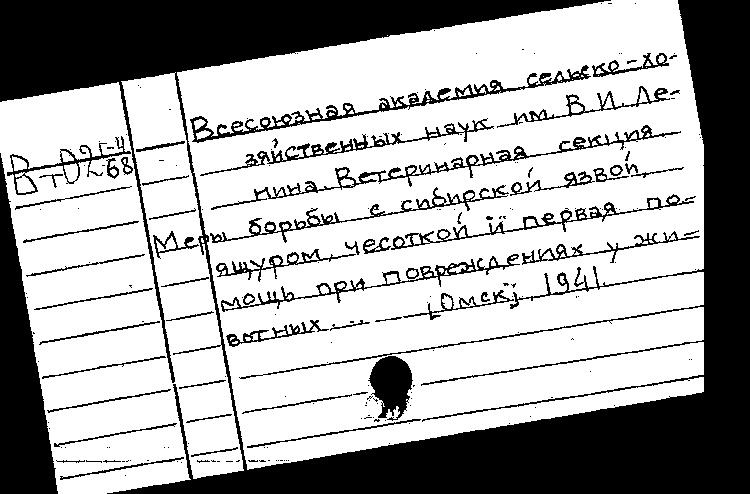 Всесоюзная академия сельско-хо-
зяйственных наук им. В.И. Ле-
нина. Ветеринарная секция.
Меры борьбы с сибирской язвой,
ящуром, чесоткой и первая по-
мощь при повреждениях у жи-
вотных... [Омск], 1941.